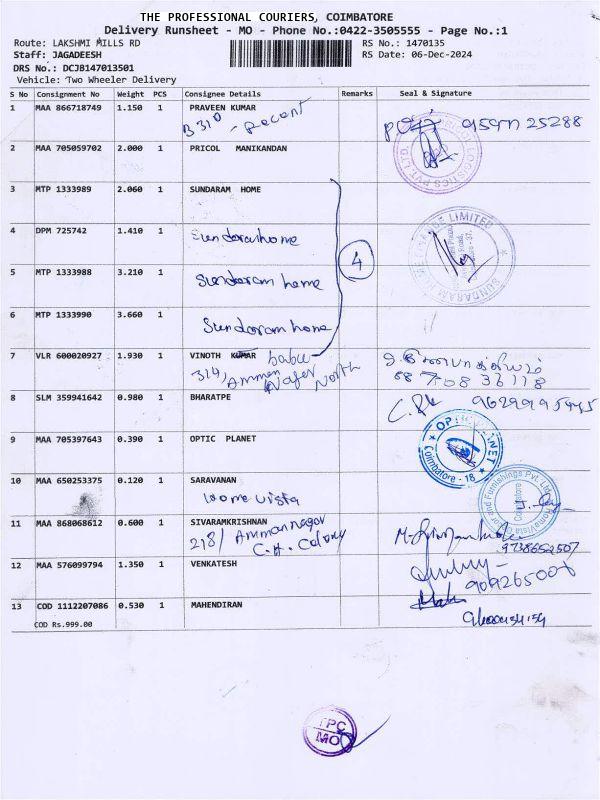 THE PROFESSIONAL COURIERS, COIMBATORE
Delivery Runsheet - MO - Phone No.:0422-3505555 - Page No.:1
Route: LAKSHMI MILLS RD
RS No.: 1470135
Staff: JAGADEESH
RS Date: 06-Dec-2024
DRS No.: DCJ8147013501
Vehicle: Two Wheeler Delivery
S No Consignment No Weight PCS Consignee Details Remarks Seal & Signature
1 MAA 866718749 1.150 1 PRAVEEN KUMAR
B 310
2 MAA 705059702 2.000 1 PRICOL MANIKANDAN
LOGISTICS PVT LTD
3 MTP 1333989 2.060 1 SUNDARAM HOME
4 DPM 725742 1.410 1 Sundaram home
4
LIMITED
SUNDARAM
5 MTP 1333988 3.210 1 Sundaram home
6 MTP 1333990 3.660 1 Sundaram home
7 VLR 600020927 1.930 1 VINOTH KUMAR babu
314, Amman Nager North
8 SLM 359941642 0.980 1 BHARATPE
9 MAA 705397643 0.390 1 OPTIC PLANET
Coimbatore - 18
10 MAA 650253375 0.120 1 SARAVANAN
Home Vista
and Furnishings Pvt. Ltd.
Coimbatore
11 MAA 868068612 0.600 1 SIVARAMKRISHNAN
218/ Amman nagar
C.H. Colony
9738652507
12 MAA 576099794 1.350 1 VENKATESH
13 COD 1112207086 0.530 1 MAHENDIRAN
COD Rs.999.00
TPC
MO